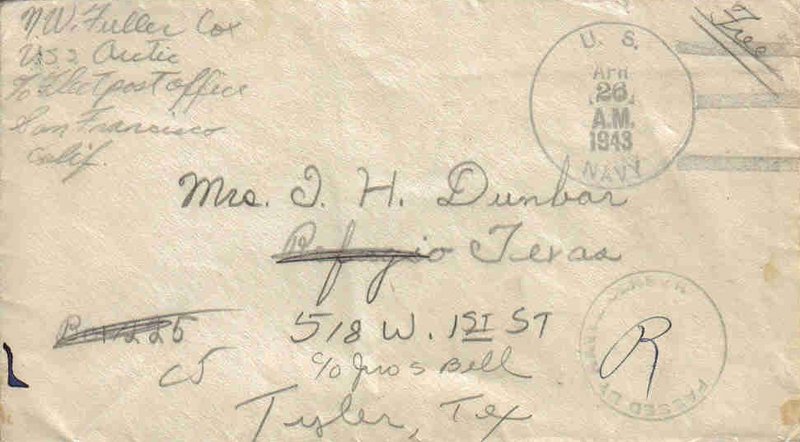 W. Fuller Cox
U.S.S. Arctic
c/o Fleet post office
San Francisco
Calif.
Free
U. S.
APR
26
A.M.
1943
NAVY
Mrs. I. H. Dunbar
Refugio Texas
518 W. 1ST ST
c/o Jno S Bell
Tyler, Tex
PASSED BY NAVAL CENSOR
R